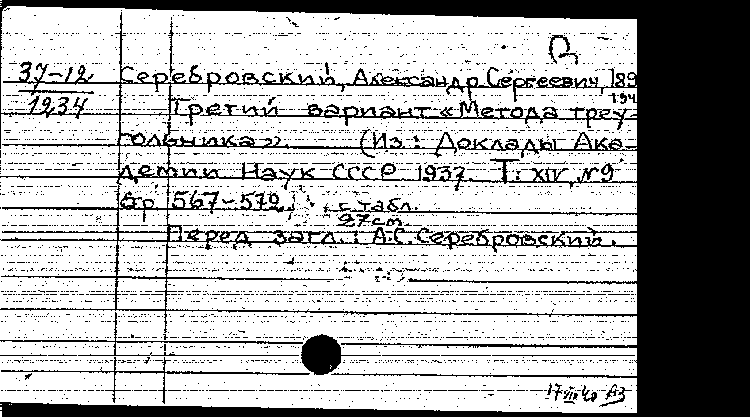 37-12 Серебровский, Александр Сергеевич, 189
1234 Третий вариант «Метода треу-
гольника». (Из: Доклады Ака-
демии Наук СССР 1937. Т. XIV, №9
Стр. 567-572) с табл.
27 cm
Перед загл.: А.С. Серебровский.
17 VIII 40 АЗ